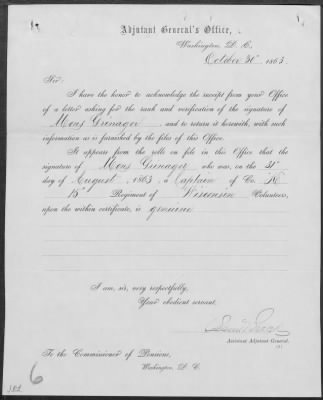 Adjutant General's Office,
Washington, D. C.
October 30th 1863
Sir:
I have the honor to acknowledge the receipt from your Office
of a letter asking for the rank and verification of the signature of
Mons Grinager and to return it herewith, with such
information as is furnished by the files of this Office.
It appears from the rolls on file in this Office that the
signature of Mons Grinager who was, on the 31st
day of August, 1863, a Captain of Co. "K"
15th Regiment of Wisconsin Volunteers,
upon the within certificate, is genuine
I am, sir, very respectfully,
Your obedient servant,
Assistant Adjutant General.
To the Commissioner of Pensions,
Washington, D. C.
6